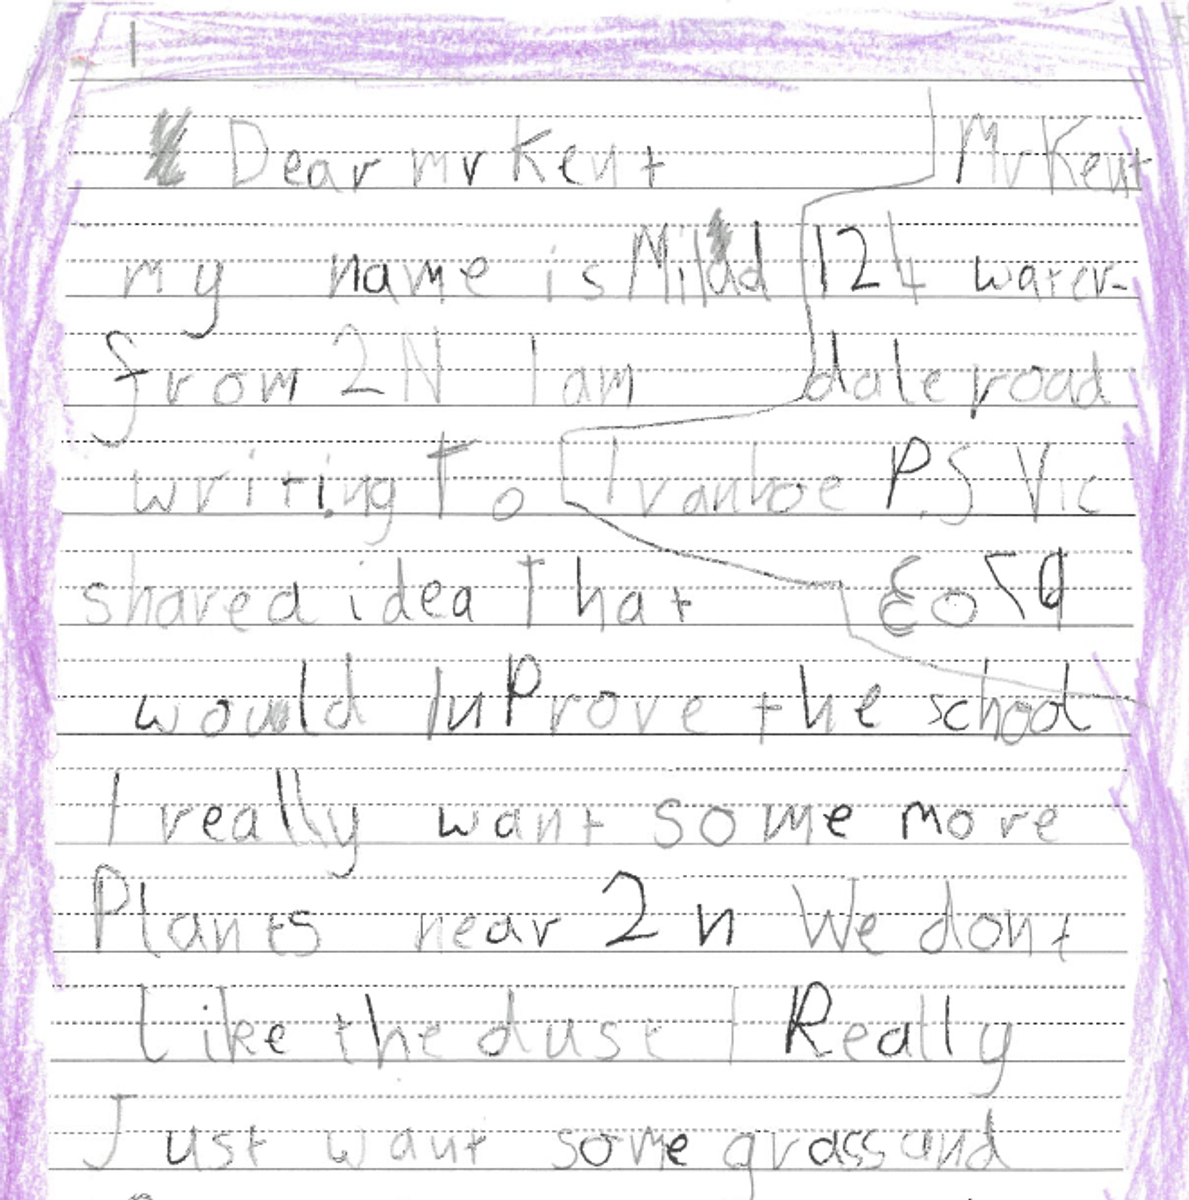 Mr Kent
124 water-
dale road
Ivanhoe P.S Vic
3079
Dear mr Kent
my name is Milad
from 2N I am
writing To
shared idea That
would InProve the school
I really want some more
Plants near 2n We dont
Like the dust I Really
Just want some grass and